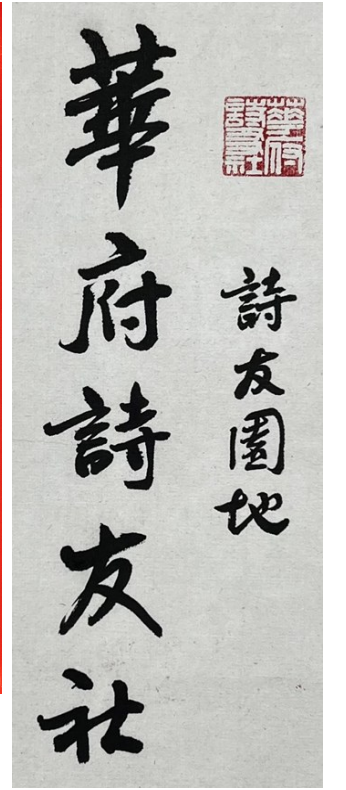 華府
詩友社
詩友園地
華府詩友社